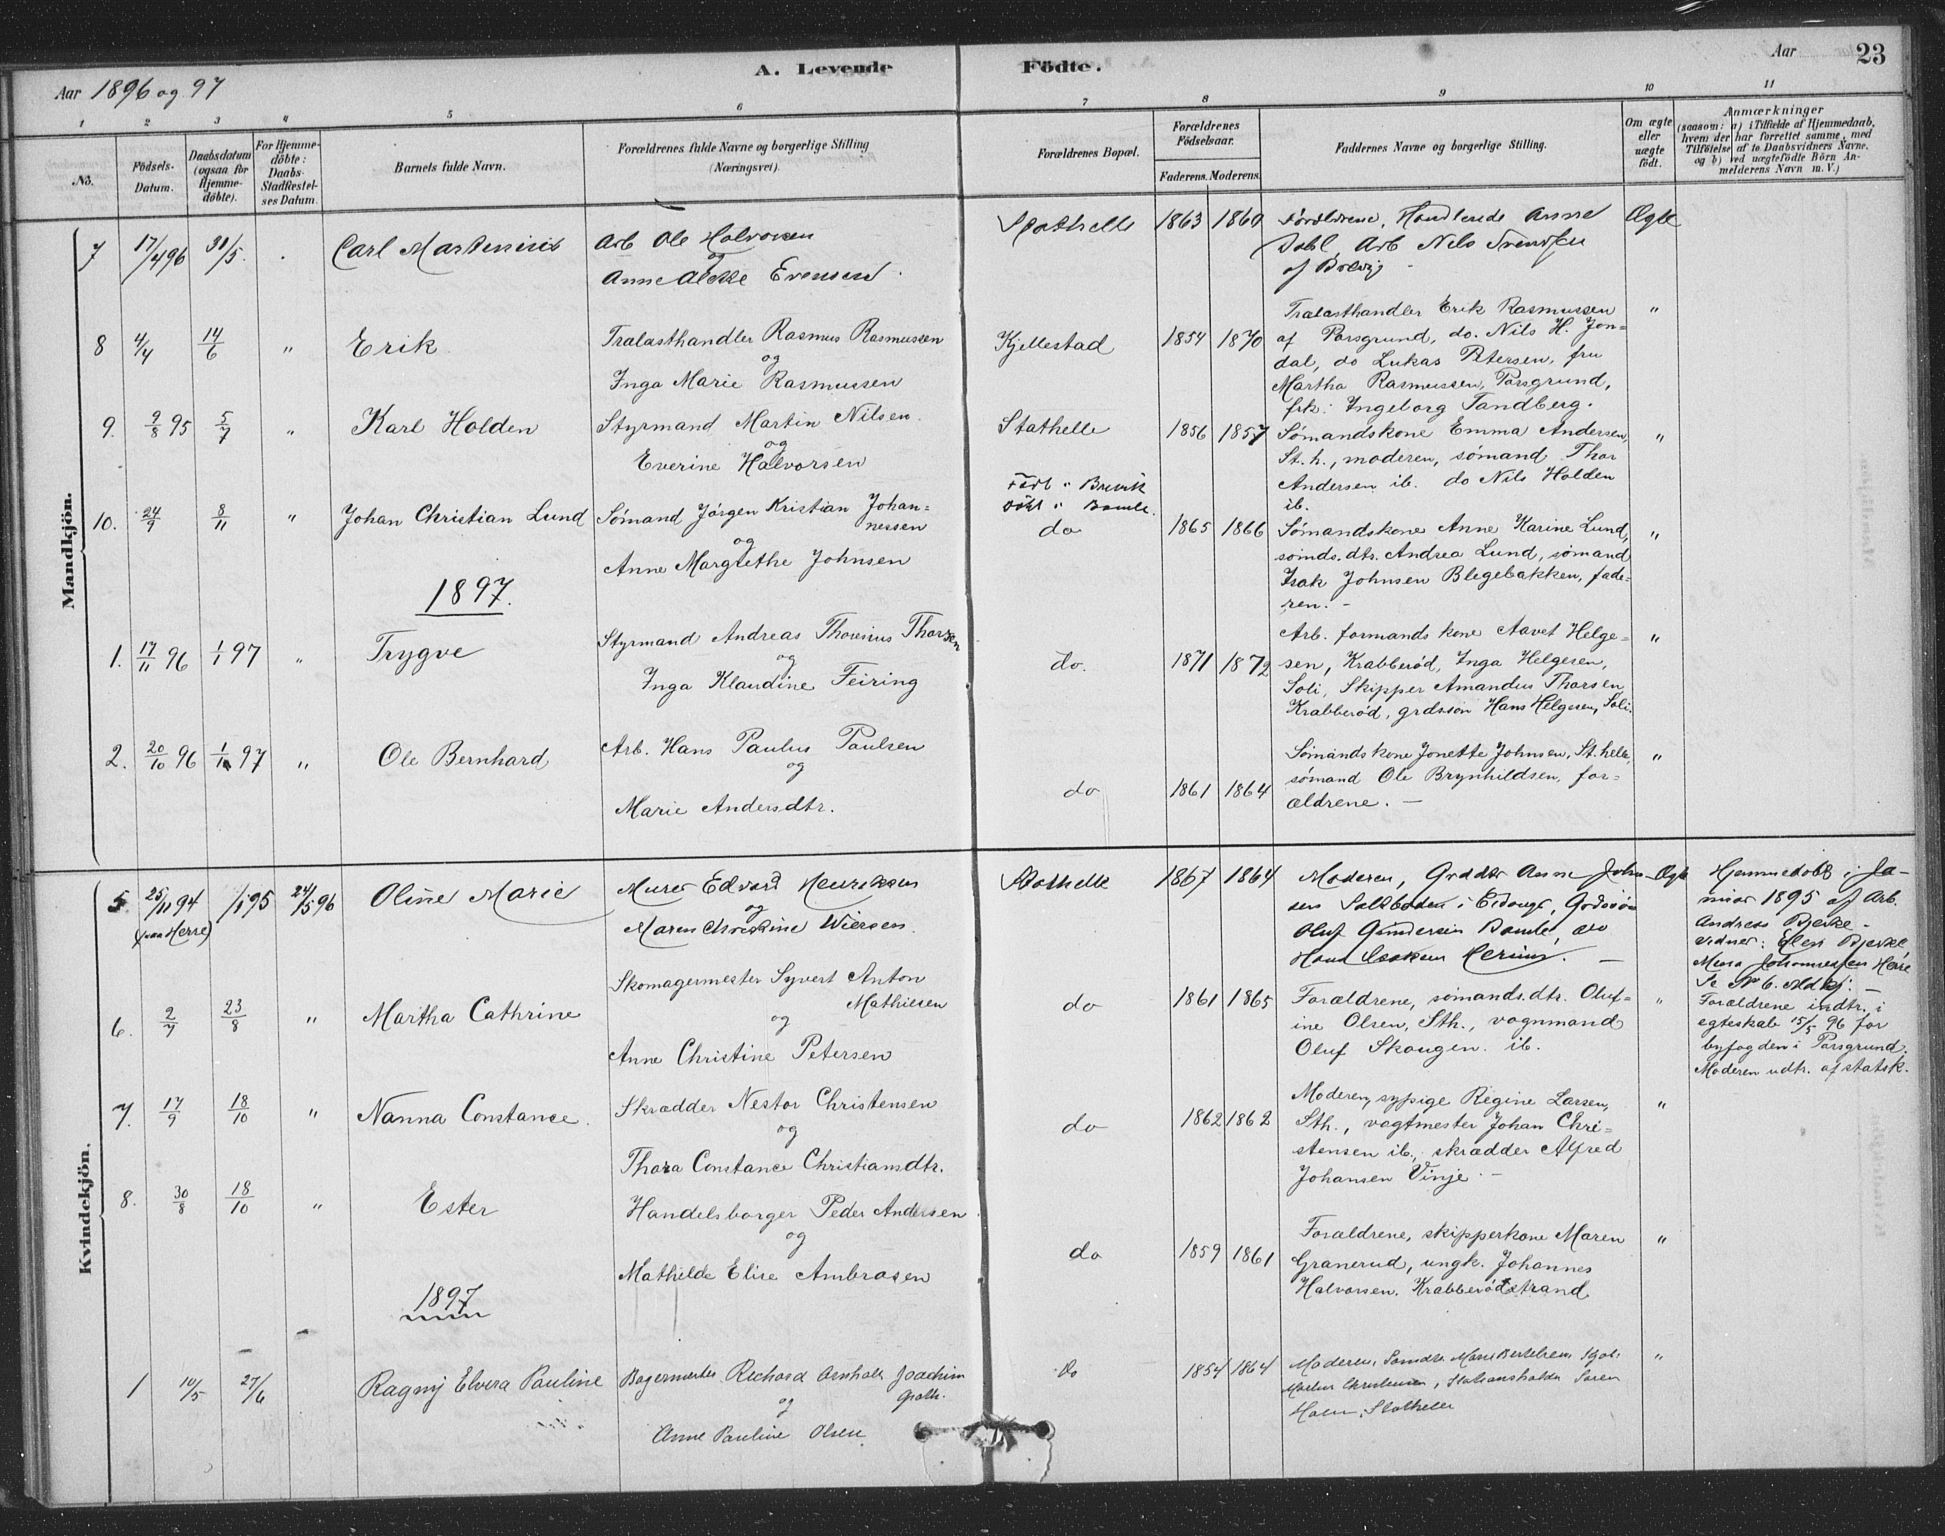 Aar 1896 og 97
A. Levende Födte.
Aar 23
1 2 3 4 5 6 7 8 9 10 11
No.
Födsels-Datum.
Daabsdatum (ogsaa for Hjemme-döbte).
For Hjemme-döbte: Daabs-Stadfæstel-ses Datum.
Barnets fulde Navn.
Forældrenes fulde Navne og borgerlige Stilling (Næringsvei).
Forældrenes Bopæl.
Forældrenes Födselsaar.
Faderens. Moderens.
Faddernes Navne og borgerlige Stilling.
Om ægte eller uægte födt.
Anmærkninger
(saasom: a) i Tilfælde af Hjemmedaab,
hvem der har forrettet samme, med
Tilföielse af to Daabsvidners Navne.
og b) ved uægtefödte Börn An-
melderens Navn m. V.)
Mandkjön.
7 17/4 96 31/5. Carl Martenius
Arb Ole Halvorsen
og
Anne Evensen.
Stathelle 1863 1860
Forældrene, Handlende Anne
Dahl, Arb Nils Svendsen
af Bolvig -
Ægte
8 4/4 14/6 " Erik
Tralasthandler Rasmus Rasmussen
og
Inga Marie Rasmussen
Kjellestad 1854 1870
Tralasthandler Erik Rasmussen
af Porsgrund, do. Nils H. Jon=
dal, do Lukas Petersen, fru
Martha Rasmussen, Porsgrund,
frk: Ingeborg Tandberg.
"
9. 9/8 95 5/7 " Karl Holden
Styrmand Martin Nilsen.
og
Everine Halvorsen
Stathelle 1856 1857
Sømandskone Emma Andersen,
St. h., moderen, sømand Thor
Andersen ib. do Nils Holden
ib.
"
10. 24/9 8/11 " Johan Christian Lund
Sømand Jørgen Kristian Johan=
nessen
og
Anne Margrethe Johnsen
Født i Brevik
Døbt i Bamle.
do 1865 1866
Sømandskone Anne Karine Lund,
sømds. dtr. Andrea Lund, sømand
Isak Johnsen Blegebakken, fade=
ren. -
"
1897.
1. 17/11 96 1/1 97 " Trygve
Styrmand Andreas Thovinus Thorsen
og
Inga Klaudine Feiring
do. 1871 1872
Arb. formands kone Aavet Helge=
sen, Krabberød, Inga Helgesen,
Soli, Skipper Amandus Thorsen
Krabberød, grdssøn Hans Helgesen, Soli.
"
2. 20/10 96 1/1 97 " Ole Bernhard
Arb. Hans Paulus Paulsen
og
Marie Andersdtr.
do 1861 1864
Sømandskone Jonette Johnsen, St.helle,
sømand Ole Brynhildsen, for=
ældrene. -
"
Kvindekjön.
5 25/11 94 1/1 95 24/5 96 Oline Marie
(paa Herre)
Murer Edvard Henriksen
og
Maren Christine Wiersen.
Stathelle 1867 1864
Moderen, Grddtr Anne John-
sen Saltboden i Eidanger, Grdssøn
Oluf Gundersen Bamle, do
Hans Isaksen Herum. -
Ægte
Hjemmedøbt i Ja-
nuar 1895 af Arb.
Andreas Bjerke -
vidner: Elen Bjerke
Mina Johannessen Herre
Se No 6. Adkj. -
6. 2/7 23/8 " Martha Cathrine
Skomagermester Syvert Anton
Mathiesen
og
Anne Christine Petersen
do 1861 1865
Forældrene, sømands. dtr. Oluf=
ine Olsen, Sth., vognmand
Oluf Skougen. ib.
"
Forældrene indtr. i
egteskab 15/5 96 for
byfogden i Porsgrund.
Moderen udtr. af statsk.
7. 17/9 18/10 " Nanna Constance.
Skrædder Nestor Christensen
og
Thora Constance Christiansdtr.
do 1862 1862
Moderen, sypige Regine Larsen,
Sth., vagtmester Johan Chri=
stensen ib., skrædder Alfred
Johansen Vinje. -
"
8. 30/8 18/10 " Ester
Handelsborger Peder Andersen
og
Mathilde Elise Ambrosen
do 1859 1861
Forældrene, skipperkone Maren
Granerud, ungk. Johannes
Halvorsen. Krabberødstrand
"
1897
1 10/5 27/6 Ragny Elvera Pauline
Bagermester Richard Arnholt Joachim
Groth.
og
Anne Pauline Olsen
Do 1854 1864
Moderen, Marie Bertelsen
Christensen, Stationsholder Søren
Holm, Stathelle
"